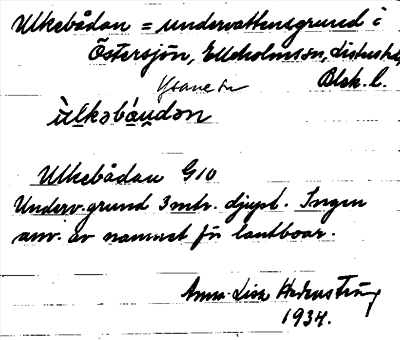 Ulkebådan = undervattensgrund i
Östersjön, Elleholmssn, Listers hd,
Blek. l.
ùlkəbáu̯dən
Ulkebådan G10
Underv.grund 3 mtr. djupt. Ingen
anv. av namnet för lantboar.
Anna-Lisa
1934.